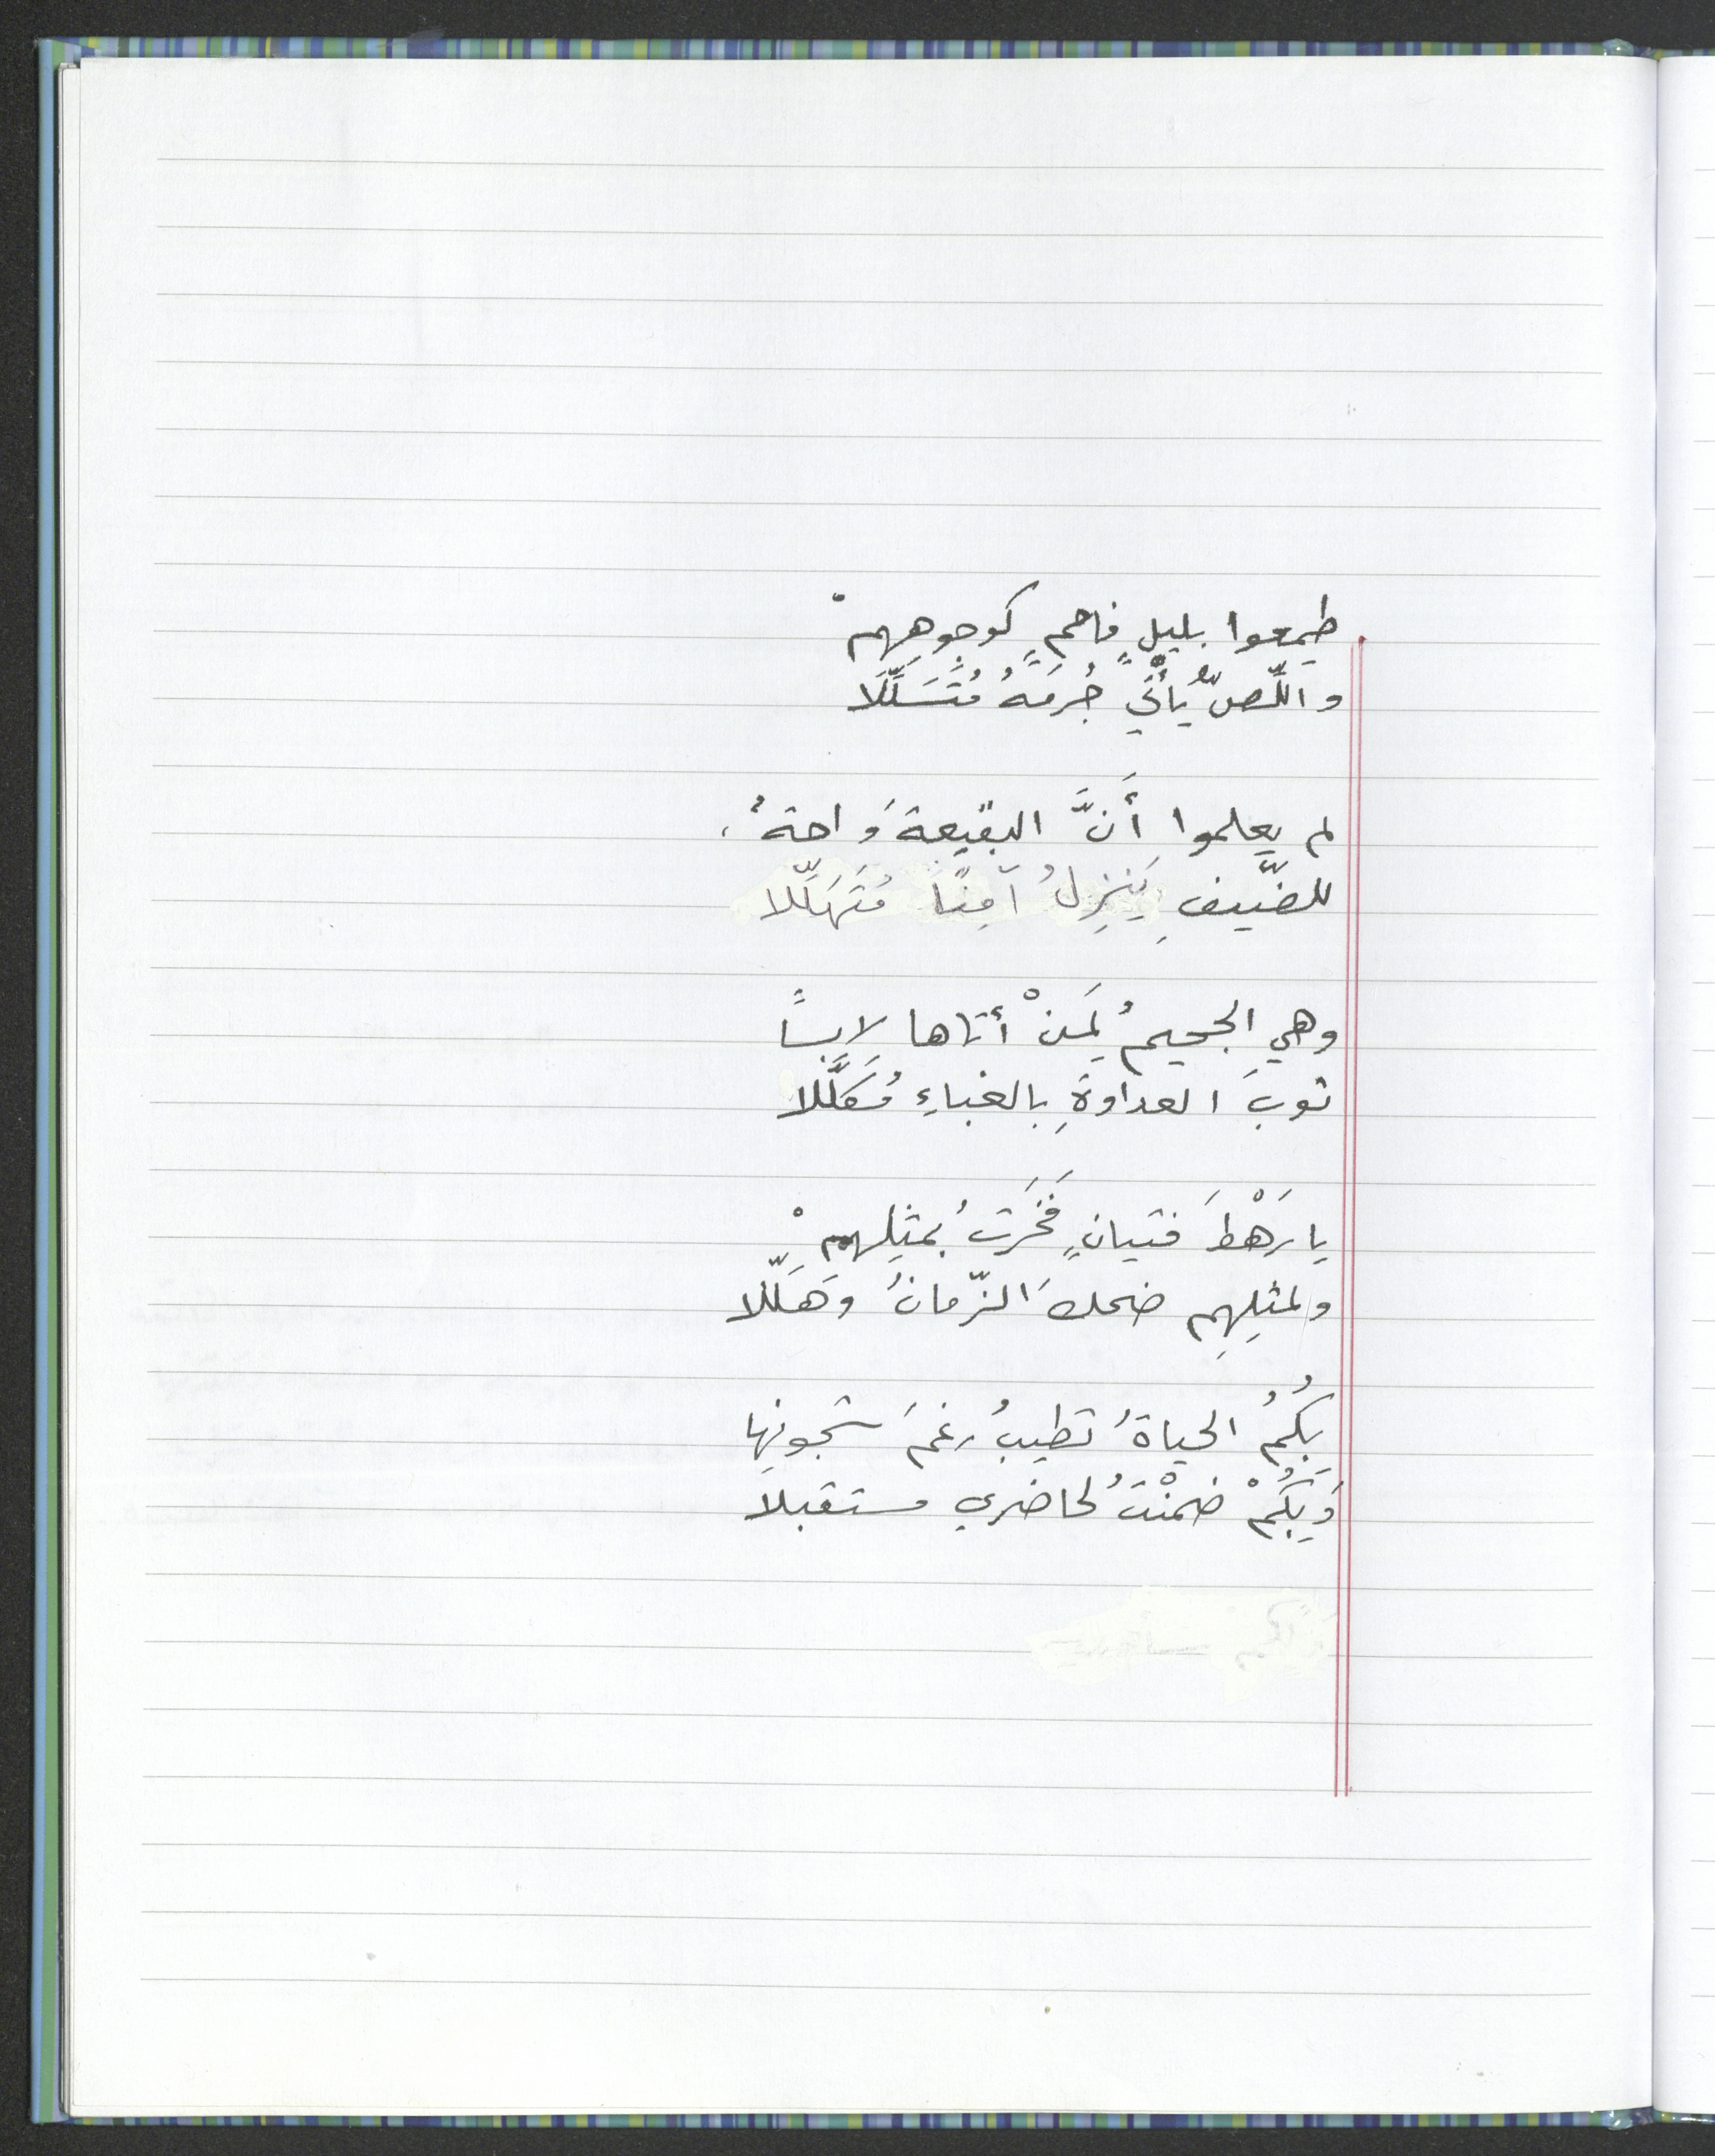 طمِعوا بليلٍ فاحمٍ كوجوهِهِمْ
واللّصُّ يأتي جُرمَهُ مُتَسَلِّلَا
لم يعلموا أَنَّ البقيعةَ واحةٌ،
للضّيفِ يَنزِلُ آمِنًا مُتَهَلِّلا
وهي الجحيمُ لِمَنْ أتاها لابِسًا
ثوبَ العداوةِ بالغباءِ مُكَلَّلا
يا رَهْطَ فتيانٍ فَخَرتُ بمثلِهِمْ
ولمثلِهِم ضحكَ الزّمانُ وهَلّلا
بِكُمُ الحياةُ تطيبُ رغمَ شجونِها
وَبِكُمْ ضمنْتُ لحاضري مستقبلا